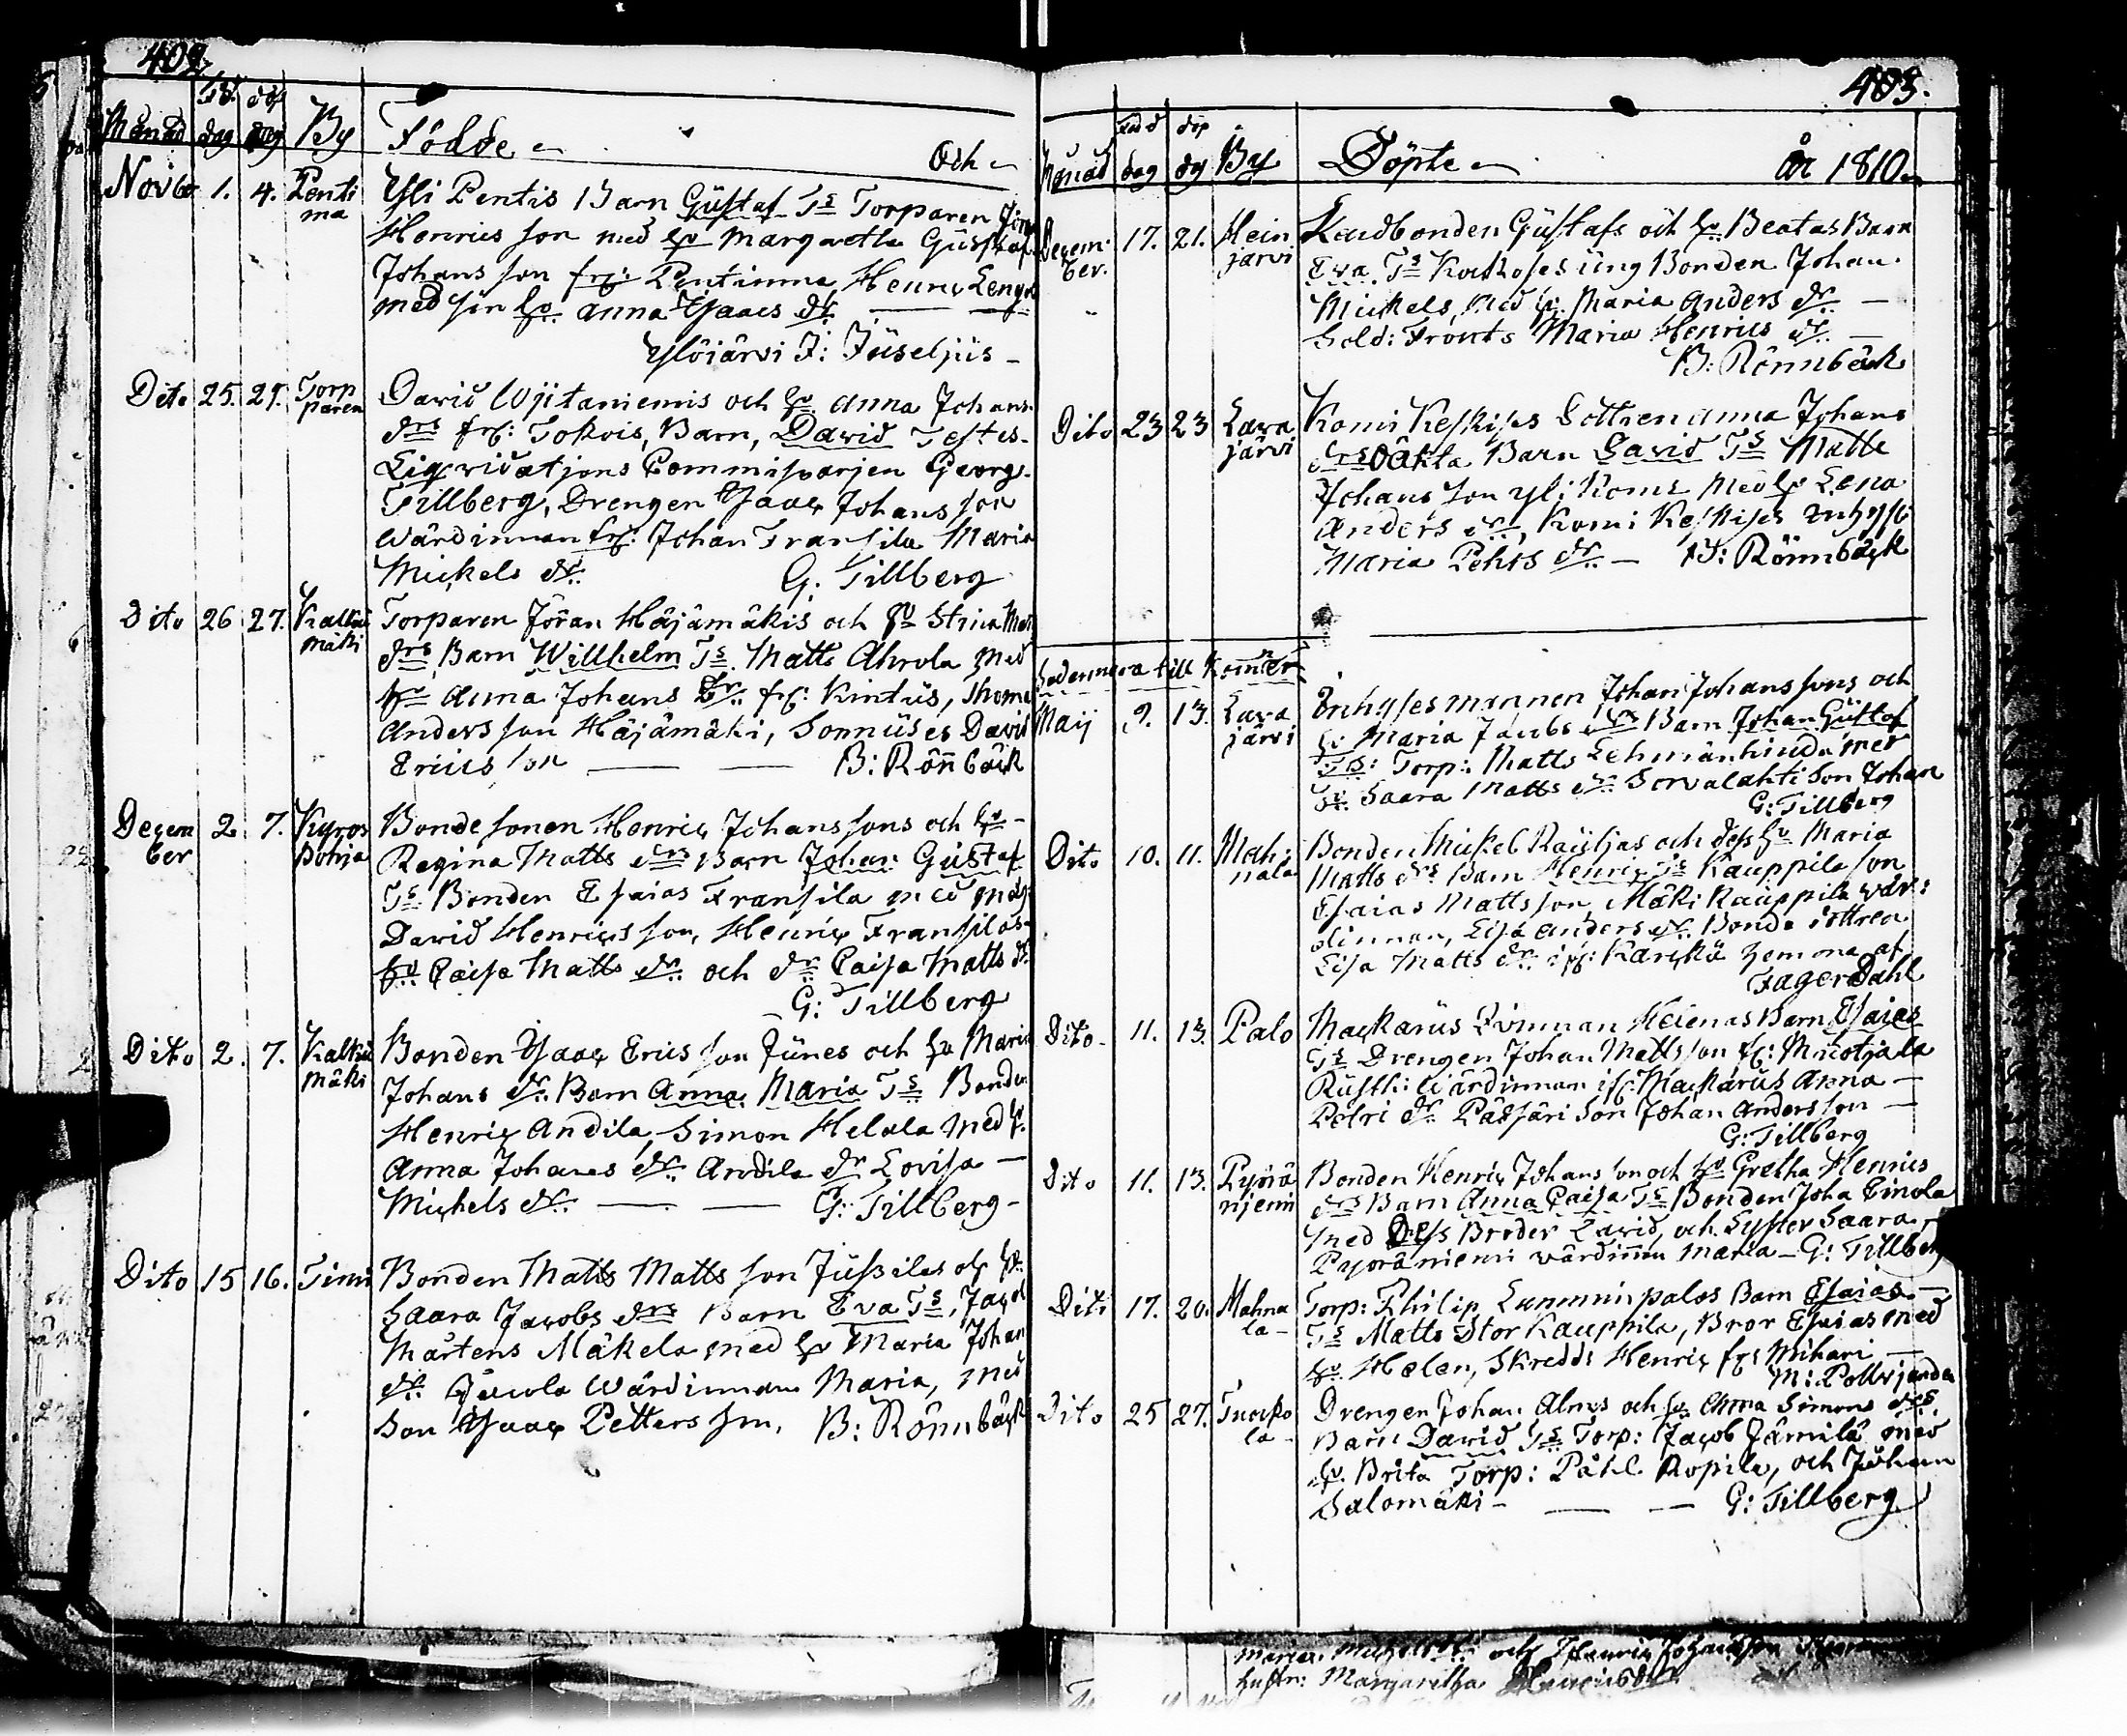 402.
Föd. döp
Månad dag dag By Födde Och
Novbr 1. 4. Penti
ma
Yli Pentis Barn Gustaf Ts Torparen Jöran
Henrics son med hu Margaretha Gustafs
Johans son fr: Pentimma Henric Lengr
med sin hu. Anna Isaacs dr
Ylöjärvi J: Juseljus
Dito 25. 29. Torp
paren
David Wjitaniemis och hu Anna Johans
drs fr: Tokois, Barn, David Testes
Liqvidatjons Commissarjen Georg
Tillberg, Drengen Isaac Johans son
Wärdinnan fr: Johan Fransila Maria
Mickels dr. G. Tillberg
Dito 26 27. Kalku
mäki
Torparen Jöran Häjämäkis och hu Stina Mats
drs Barn Willhelm Ts. Matts Ahrola med
hu Anna Johans Dr. fr: Kintus, Thomas
Anders son Häjämäki, Sonnuses David
Erics son B: Rönnbäck
Decem
ber 2. 7. Kyrös
pohja
Bonde sonen Henric Johans sons och hu
Regina Matts drs Barn Johan Gustaf
Ts Bonden Esaias Fransila med måg
David Henrics son, Henric Fransilas
hu Caisa Matts dr. och dr Caisa Matts dr
G: Tillberg
Dito 2. 7. Kalku
mäki
Bonden Isaac Erics son Junes och hu Maria
Johans dr. Barn Anna Maria Ts Bonden
Henric Andila, Simon Helala med h.
Anna Johans dr. Andila dr Lovisa
Michels dr. G: Tillberg
Dito 15 16. Timi
Bonden Matts Matts son Jussilas och hu
Saara Jacobs drs Barn Eva Ts, Jacob
Mårtens Mäkela med hu Maria Johans
dr. Juvola Wärdinnan Maria, med
Son Isaac Petters son, B: Rönnbäck
403.
Född döp
Månad dag dg By Döpte år 1810
Decem
ber. 17. 21. Hein
järvi
Landbonden Gustafs och hu Beatas Barn
Eva Ts Kathoses ung Bonden Johan
Mickels, med h: Maria Anders dr.
Sold: Fronts Maria Henrics dr.
B: Rönnbäck
Dito 23 23 Lava
järvi
Komi Keskises Dottren Anna Johans
drs Oäkta Barn David Ts Matts
Johans son Yli Komi med hu Lena
Anders dr., Komi Keskises inhyse
Maria Pehrs dr. B: Rönnbäck
Sedermera till kommer
Maij 9. 13. Lava
järvi
Inhyses mannen Johan Johans sons och
hu Maria Jacobs drs Barn Johan Gustaf
Ts: Torp: Matts Lehmänhinda med
hu Saara Matts dr. Sorvalahti Son Johan
G: Tillberg
Dito 10. 11. Mah
nala
Bonden Mickel Raujas och dess hu Maria
Matts drs Barn Henric Ts Kauppila son
Esaias Matts son Mäki Kauppila värd:
dinnan, Lisa Anders dr. Bonde dottren
Lisa Matts dr. i fr: Karckü hemma af
Fagerdahl
Dito 11. 13. Palo
Mackarus Qvinnan Helenas Barn Esaias
Ts Drengen Johan Matts son fr: Mustjala
Rusth: Wärdinnan ifr: Mackarus Anna
Petri dr. Passari Son Johan Anders son
G: Tillberg
Dito 11. 13. Pyörä
njemi
Bonden Henric Johans son och hu Gretha Henrics
drs Barn Anna Caisa Ts Bonden Joha Einola
med Dess Broder David, och Syster Saara
Pyöräniemi wärdinnan Maria G: Tillberg
Dito 17. 20. Mahna
la
Torp: Philip Lumminpalos Barn Esaias
Ts Matts Stor Kauppila, Bror Esaias med
hu. Helen, Skredd: Henric fr: Mihari
M: Pollvjander
Dito 25 27. Tuoko
la
Drengen Johan Almes och hu Anna Simons drs.
Barn David Ts Torp: Jacob Jämilä med
hu. Brita Torp: Påhl Ropila, och Johan
Salomäki G: Tillberg
Maria Michels dr: och Henric Johansson
hustr: Margaretha Henricsdr